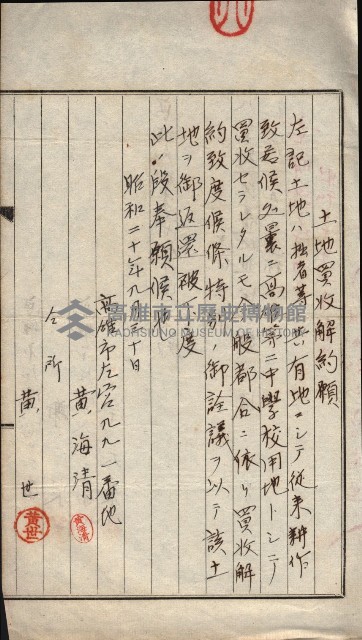 土地買收解約願
左記土地ハ拙者等共有地ニシテ從来耕作
致居候処曩ニ高雄第二中學校用地トシテ
買收セラレタルモ今般都合ニ依リ買收解
約致度候條特別ノ御詮議ヲ以テ該土
地ヲ御返還被下度
此ノ段奉願候也
昭和二十年九月三十日
高雄市左営九九一番地
黄海清
黄海清
仝所
黄世
黄世
高雄市立歷史博物館
KAOHSIUNG MUSEUM OF HISTORY